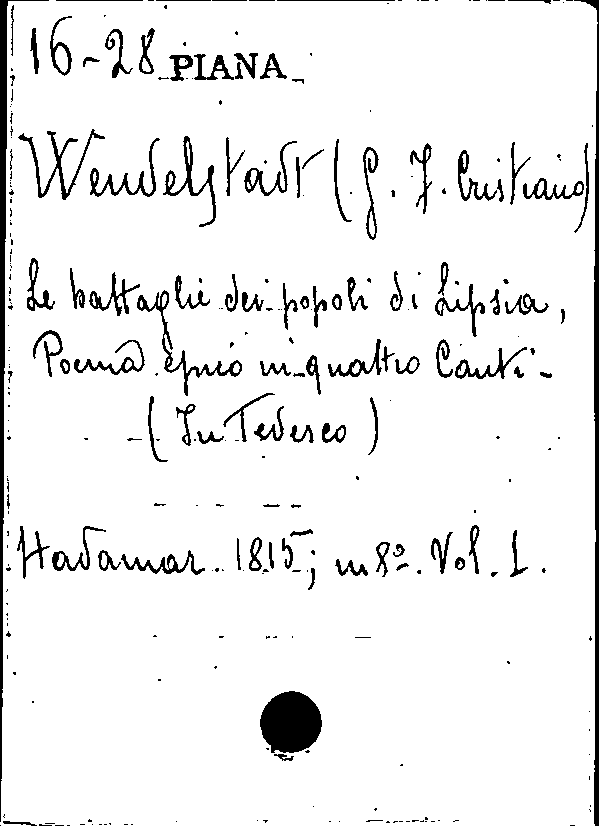 16-28 PIANA
Wendelstadt (G. F. Cristiano)
Le battaglie dei popoli di Lipsia,
Poema epico in quattro Canti -
(In Tedesco)
Hadamar 1815; in 8º. Vol. 1.